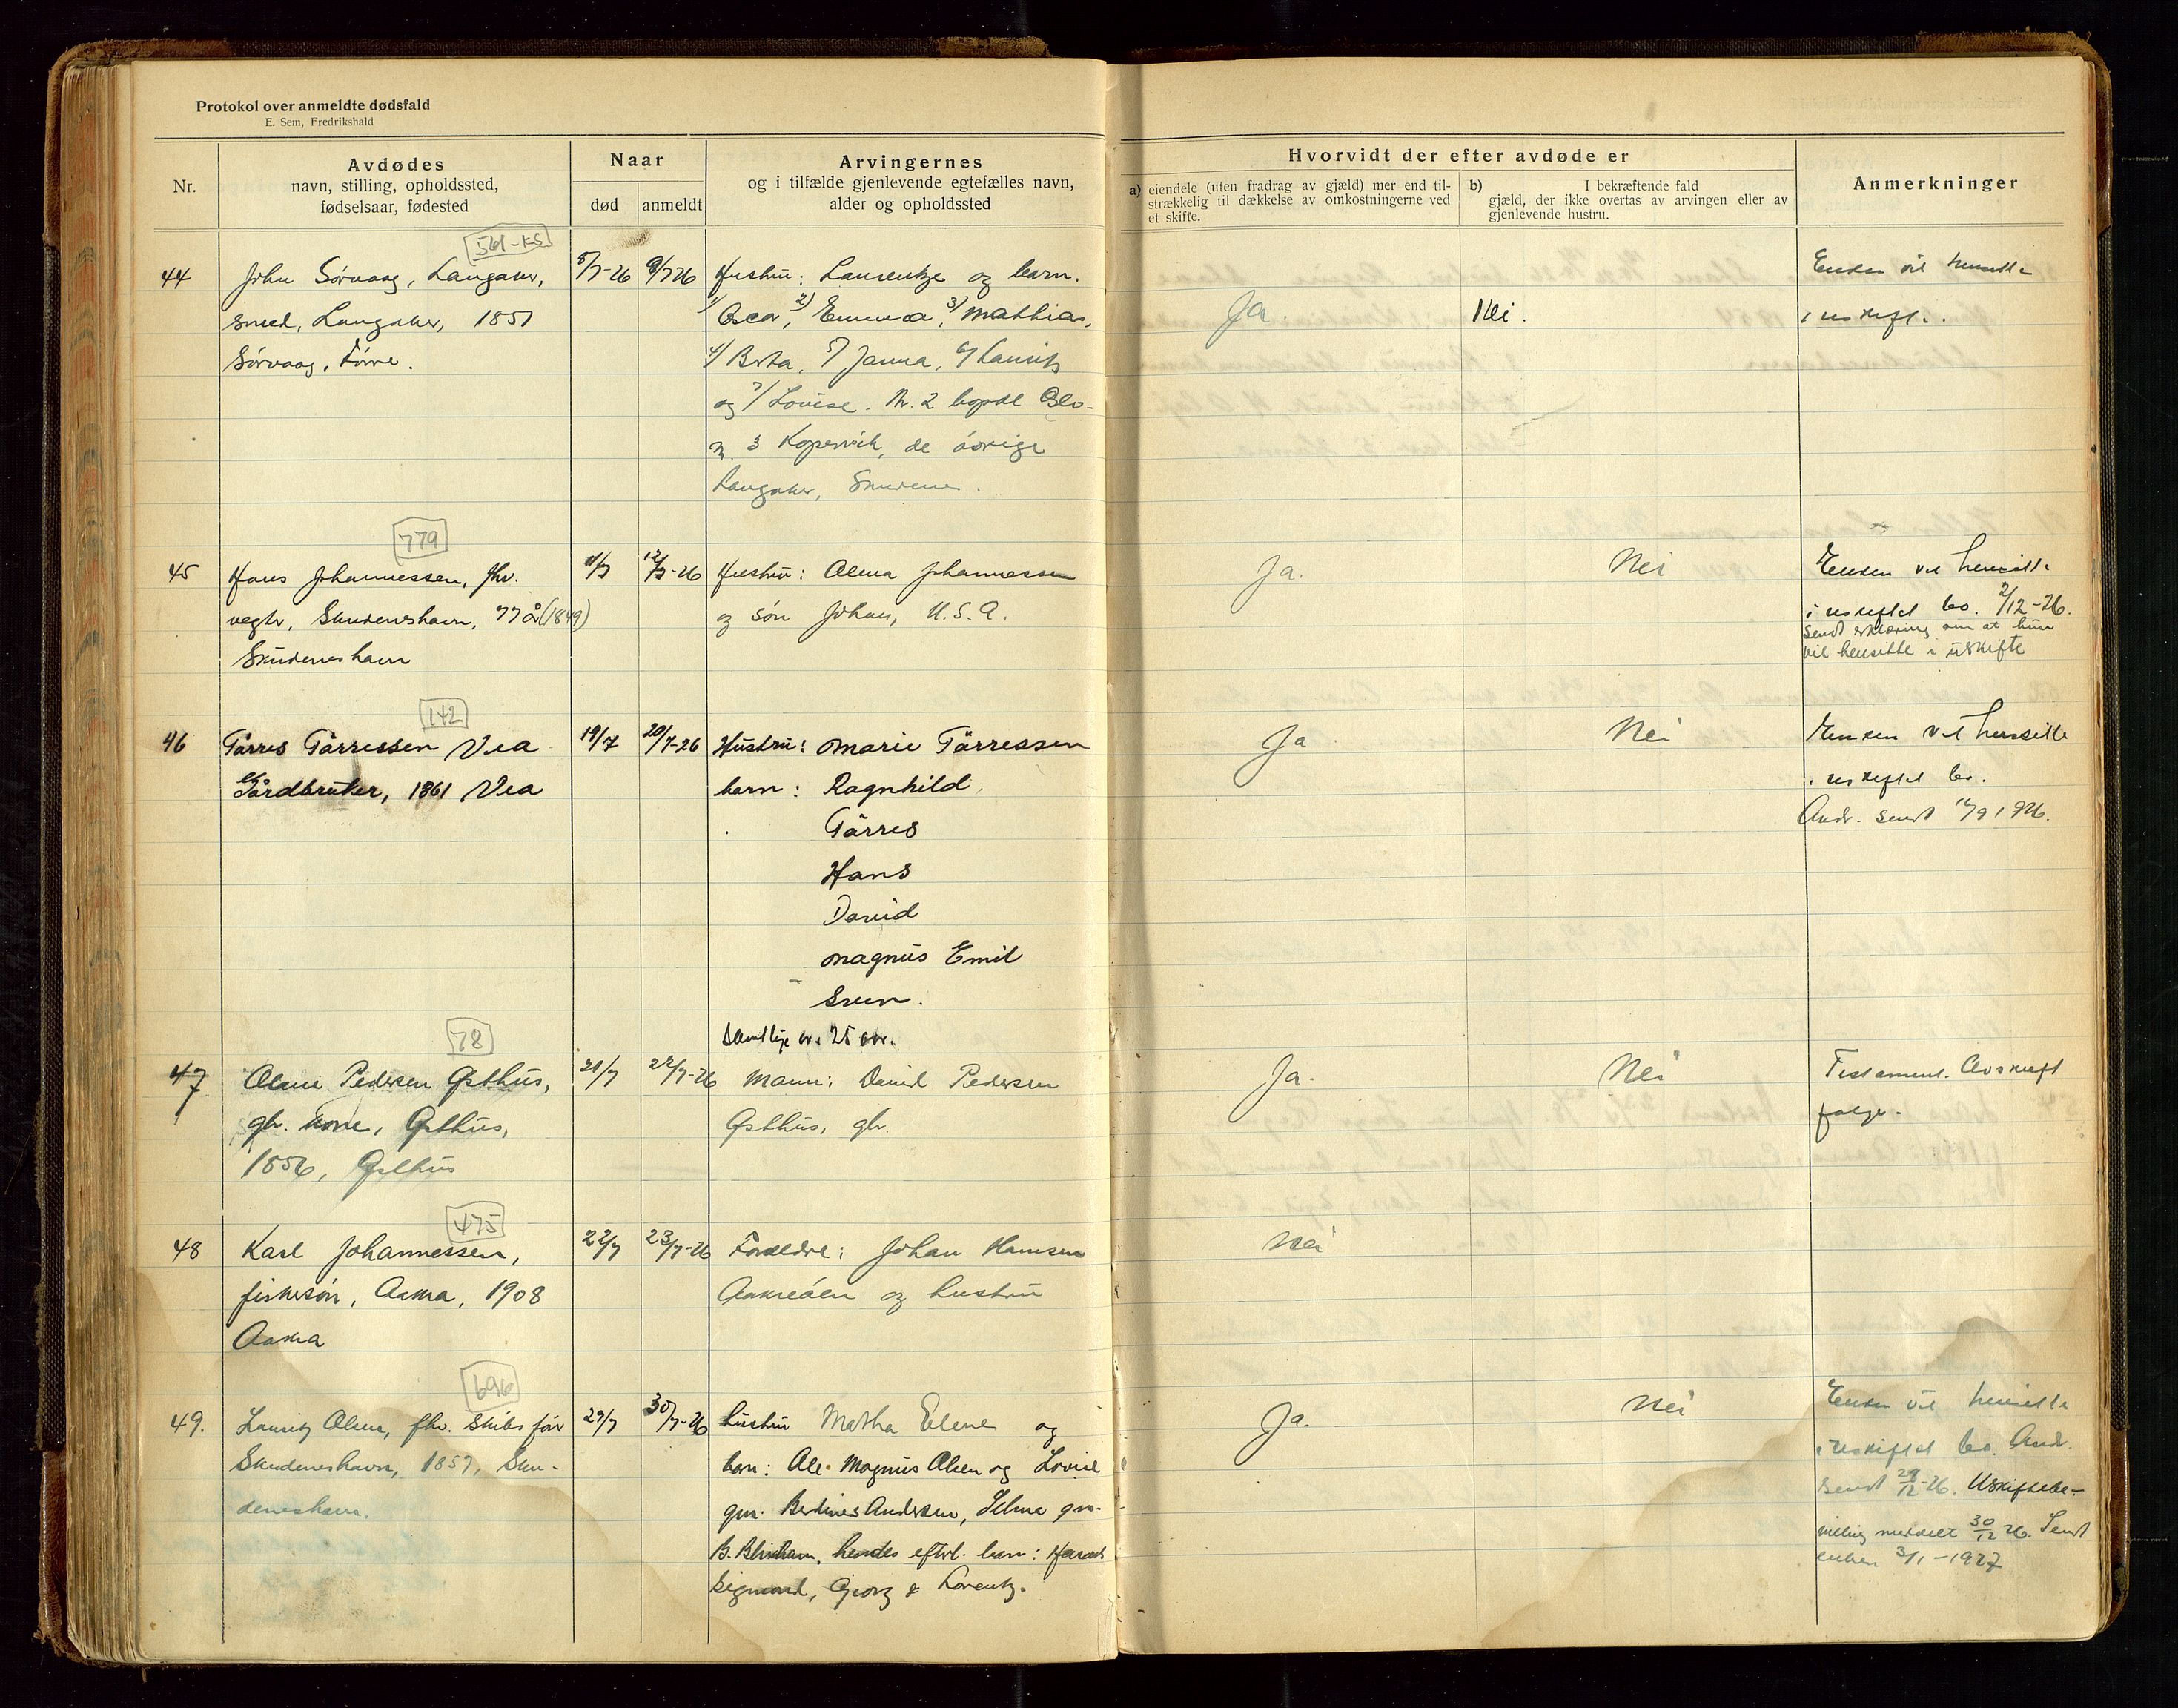 Protokol over anmeldte dødsfald
E. Sem, Fredrikshald
Nr.
Avdødes
navn, stilling, opholdssted,
fødselsaar, fødested
Naar
død
anmeldt
Arvingernes
og i tilfælde gjenlevende egtefælles navn,
alder og opholdssted
Hvorvidt der efter avdøde er
a) eiendele (uten fradrag av gjæld) mer end til-
strækkelig til dækkelse av omkostningerne ved
et skifte.
b) I bekræftende fald
gjæld, der ikke overtas av arvingen eller av
gjenlevende hustru.
Anmerkninger
44
John Sörvaag, Langaker,
smed, Langaker, 1851
Sörvaag, Förre.
5/7-26
9/7 26
Hustru: Laurentze og barn.
1/ Oscar, 2) Emma, 3) Mathias,
4/ Berta, 5/ Janna, 6/ Lauritz
og 7/ Lovise. Nr. 2 bopdl Oslo-
n. 3 Kopervik, de övrige
Langaker, Skudenes.
Ja.
Nei.
Enken vil hensitte
i uskifte.
779
45
Hans Johannessen, fhv.
vegtr, Skudeneshavn, 77 å (1849)
Skudeneshavn
12/7-26
Hustru: Alma Johannessen
og sön Johan, U.S.A.
Ja.
Nei
Enken vil hensitte
i uskiftet bo. 2/12-26.
sendt erklæring om at hun
vil hensitte i uskifte
142
46
Tårres Tårressen Vea
Gårdbruker, 1861 Vea
19/7
20/7-26
Hustru: Marie Tårressen
barn: Ragnhild,
Tårres
Hans
David
Magnus Emil
Sven.
Samtlige o. 25 år.
Ja
Nei
Enken vil hensitte
i uskiftet bo.
Andr. sendt 16/9 1926.
78
47
Pedersen Østhus,
gbr. kone, Østhus,
1856, Østhus
21/7
22/7-26
Mann: David Pedersen
Østhus, gbr.
Ja.
Nei
Testament. Avskrift
følge.
475
48
Karl Johannessen,
fiskesön, Aakra, 1908
Aakra
22/7
23/7-26
Forældre: Johan Hansen
Aakreöen og hustru
Nei
696
49.
Lauritz Olsen, fhv. skibsförer
Skudeneshavn, 1857, Sku-
deneshavn.
29/7
30/7-26
hustru Martha Elene og
barn: Ole Magnus Olsen og Lovise
gm. Berdines Andersen, Selma gm.
B. hendes efterl. barn: Harald
Sigmund, Georg & Lorentz.
Ja.
Nei
Enken vil hensitte
i uskiftet bo. Andr.
sendt 28/12-26. Uskiftebe-
villing meddelt 30/12 26. Sendt
enken 3/1-1927